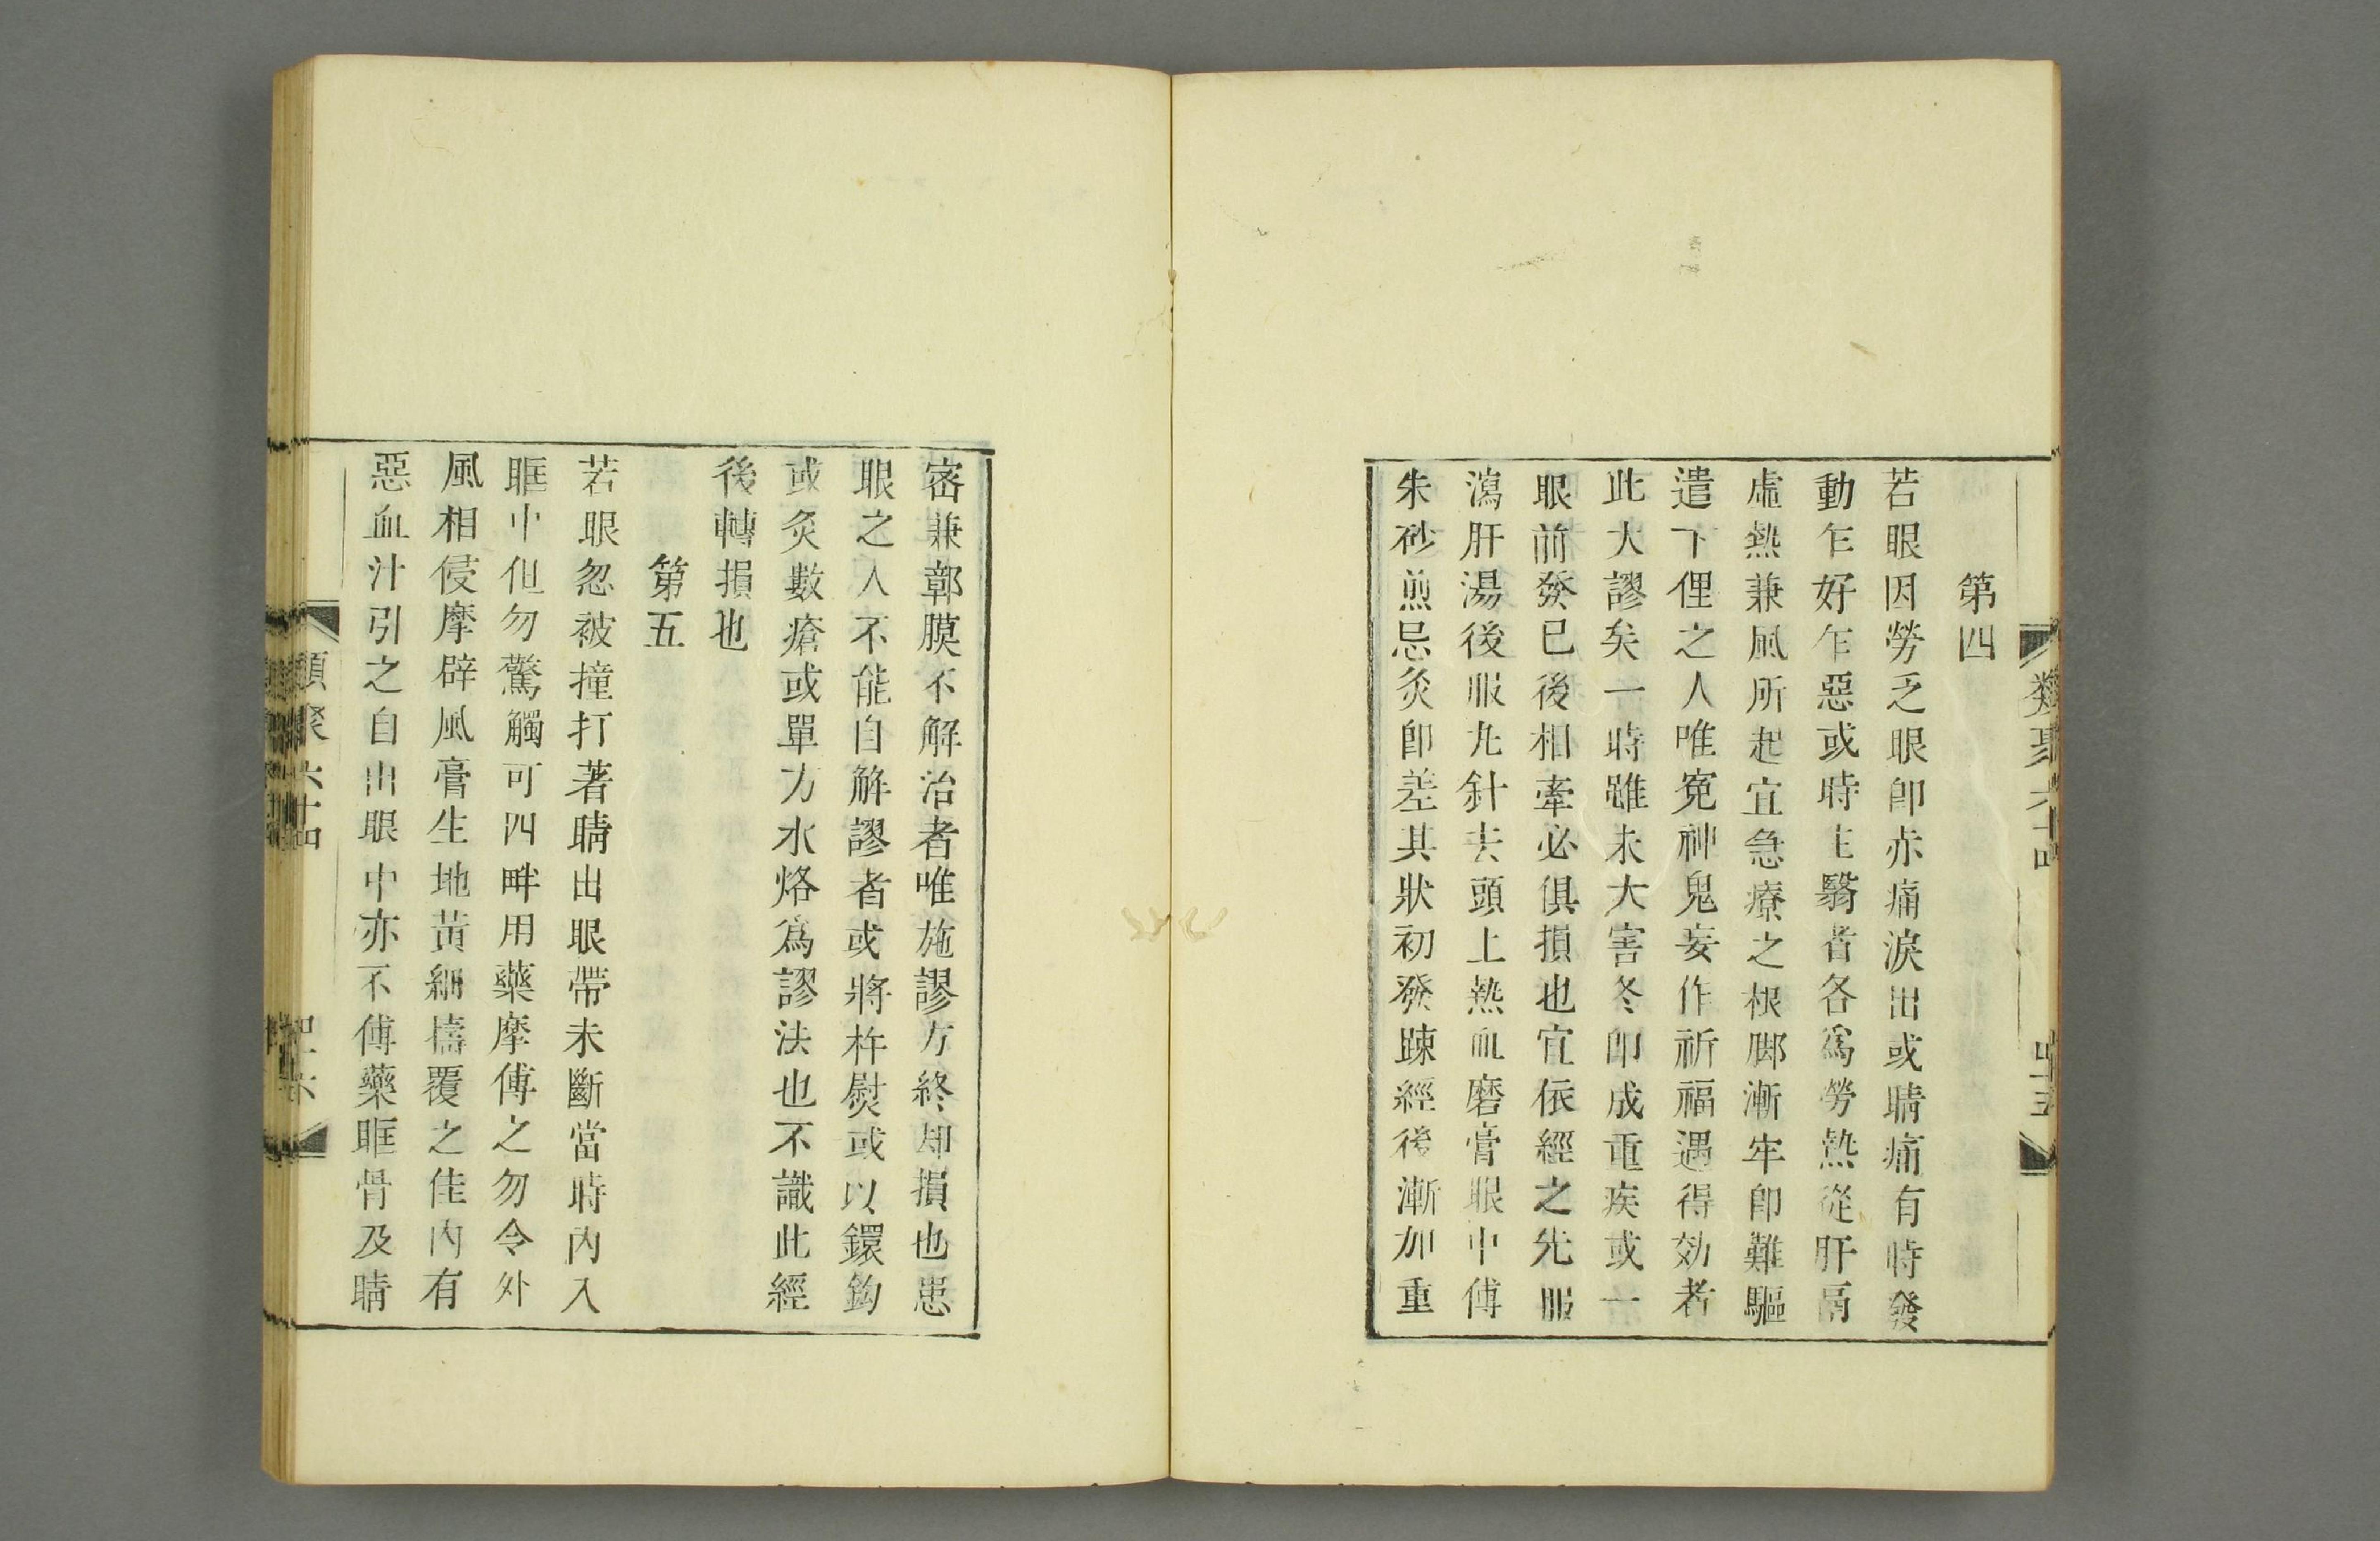 類聚六十四
四十五
第四
若眼因勞乏眼卽赤痛淚出或睛痛有時發
動乍好乍惡或時生翳者各爲勞熱從肝鬲
虛熱兼風所起宜急療之根脚漸牢卽難驅
遣下俚之人唯寃神鬼妄作祈福遇得効者
此大謬矣一時雖未大害冬卽成重疾或一
眼前發已後相牽必俱損也宜依經之先服
瀉肝湯後服丸針去頭上熱血磨膏眼中傅
朱砂煎忌灸卽差其狀初發踈經後漸加重
密兼鄣膜不解治者唯施謬方終却損也患
眼之人不能自解謬者或將杵熨或以鐶鈎
或灸數瘡或單方水烙爲謬法也不識此經
後轉損也
第五
若眼忽被撞打著睛出眼帶未斷當時內入
眶中但勿驚觸可四畔用藥摩傅之勿令外
風相侵摩辟風膏生地黃細擣覆之佳內有
惡血汁引之自出眼中亦不傅藥眶骨及睛
類聚六十四
四十六